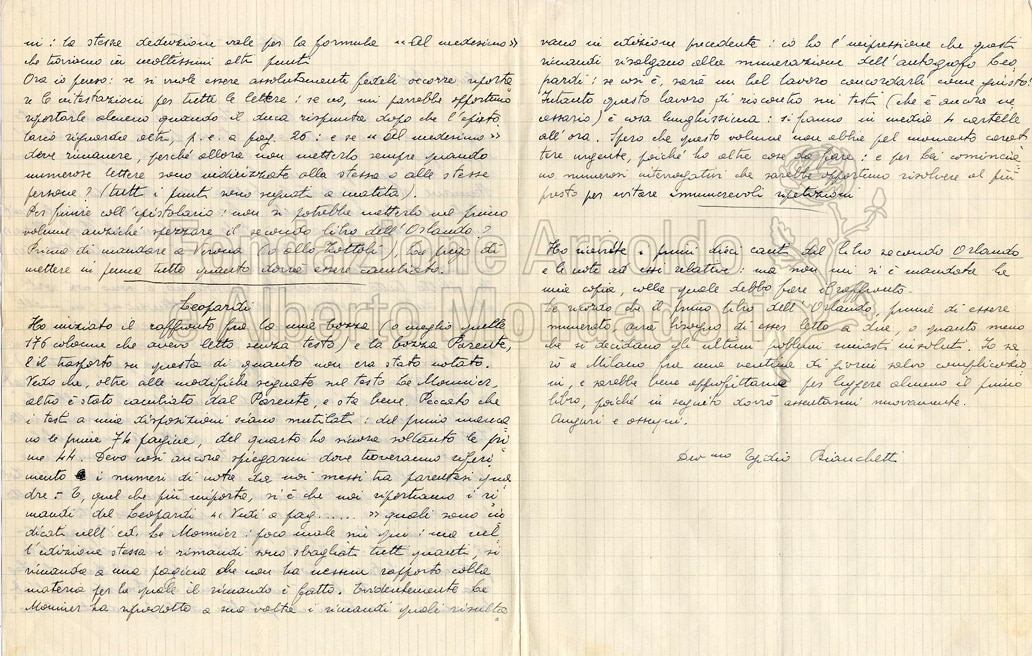 ni: la stessa deduzione vale per la formula «Al medesimo»
che troviamo in moltissimi altri punti.
Ora io penso: se si vuole essere assolutamente fedeli occorre riporta
re le intestazioni per tutte le lettere: se no, mi parrebbe opportuno
riportarle almeno quando il duca risponde dopo che l'episto
lario riguarda altri, p. e. a pag. 26: e se «Al medesimo»
deve rimanere, perché allora non metterlo sempre quando
numerose lettere sono indirizzate alla stessa o alle stesse
persone? (tutti i punti sono segnati a matita).
Per finire coll'epistolario: non si potrebbe metterlo nel primo
volume anziché spezzare il secondo libro dell'Orlando?
Prima di mandare a Verona (o allo Zottoli), La prego di
mettere in penna tutto quanto dovrà essere cambiato.
Leopardi
Ho iniziato il raffronto fra la mia bozza (o meglio quelle
176 colonne che avevo letto senza testo) e la bozza Parente,
e il trasporto su questa di quanto non era stato notato.
Vedo che, oltre alle modifiche segnate nel testo Le Monnier,
altro è stato cambiato dal Parente, e sta bene. Peccato che
i testi a mia disposizione siano mutilati: del primo manca
no le prime 74 pagine, del quarto ho ricevuto soltanto le pri
me 44. Devo così ancora spiegarmi dove troveranno riferi
mento i numeri di nota da noi messi tra parentesi qua
dre. E, quel che più importa, si è che noi riportiamo i ri
mandi del Leopardi «Vedi a pag. ...... » quali sono in
dicati nell'ed. Le Monnier: poco male mi qui: ma nel
l'edizione stessa i rimandi sono sbagliati tutti quanti, si
rimanda a una pagina che non ha nessun rapporto colla
materia per la quale il rimando è fatto. Evidentemente Le
Monnier ha riprodotto a sua volta i rimandi quali risulta
vano in edizione precedente: io ho l'impressione che questi
rimandi risalgano alla numerazione dell'autografo Leo
pardi: se così è, sarà un bel lavoro concordarli come giusto!
Intanto questo lavoro di riscontro sui testi (che è ancora ne
cessario) è cosa lunghissima: si fanno in media 4 cartelle
all'ora. Spero che questo volume non abbia pel momento carat
tere urgente, poiché ho altre cose da fare: e per lui comincia
no numerosi interrogativi che sarebbe opportuno risolvere al più
presto per evitare innumerevoli ripetizioni
Ho ricevuto i primi dieci canti del libro secondo Orlando
e le note ad esse relative: ma non mi si è mandata la
mia copia, colla quale debbo fare il raffronto.
Le ricordo che il primo libro dell'Orlando, prima di essere
numerato, avrà bisogno di esser letto a due o quanto meno
che si decidano gli ultimi problemi rimasti insoluti. Io sa
rò a Milano fra una ventina di giorni salvo complicazio
ni, e sarebbe bene approfittarne per leggere almeno il primo
libro, poiché in seguito dovrò assentarmi nuovamente.
Auguri e ossequi.
Dev.mo Egidio Bianchetti
Fondazione Arnoldo
e Alberto Mondadori